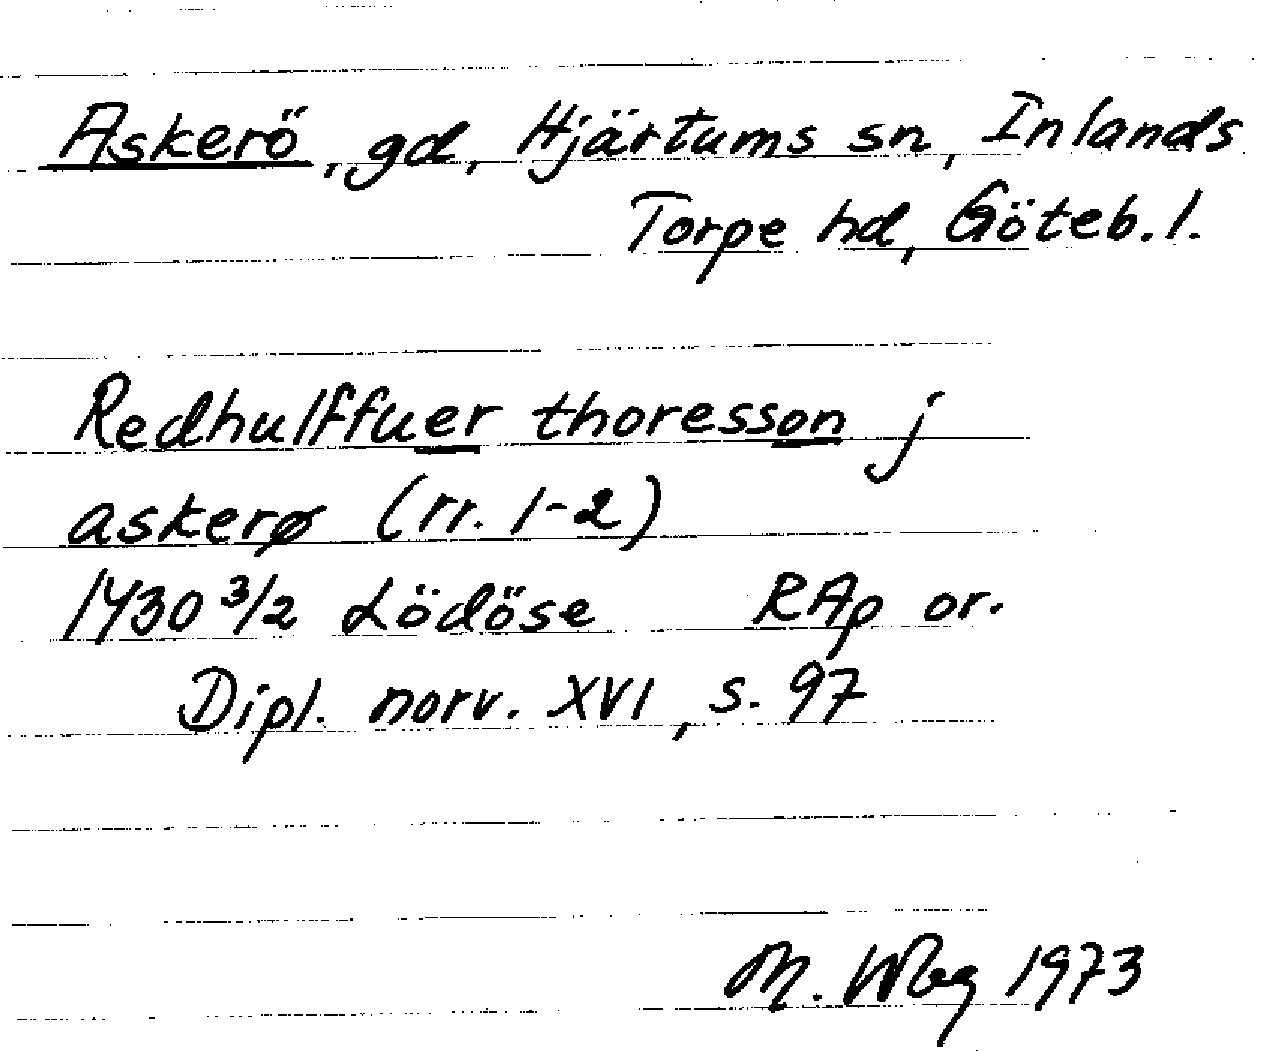 Askerö, gd, Hjärtums sn, Inlands
Torpe hd, Göteb. l.
Redhulffuer thoresson j
askerø (rr. 1-2)
1430 3/2 Lödöse RAp or.
Dipl. norv. XVI, s. 97
M. Wbg 1973